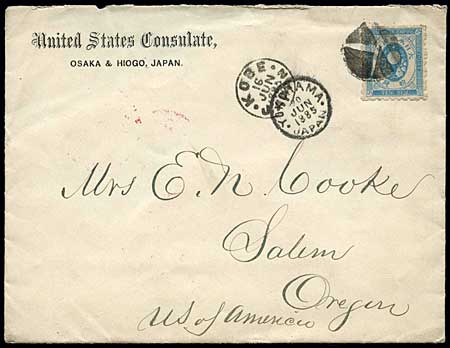 United States Consulate,
OSAKA & HIOGO, JAPAN.
KOBE
16
JUN
YOKOHAMA
JUN
1885
JAPAN
Mrs E. N. Cooke
Salem
Oregon
US of America